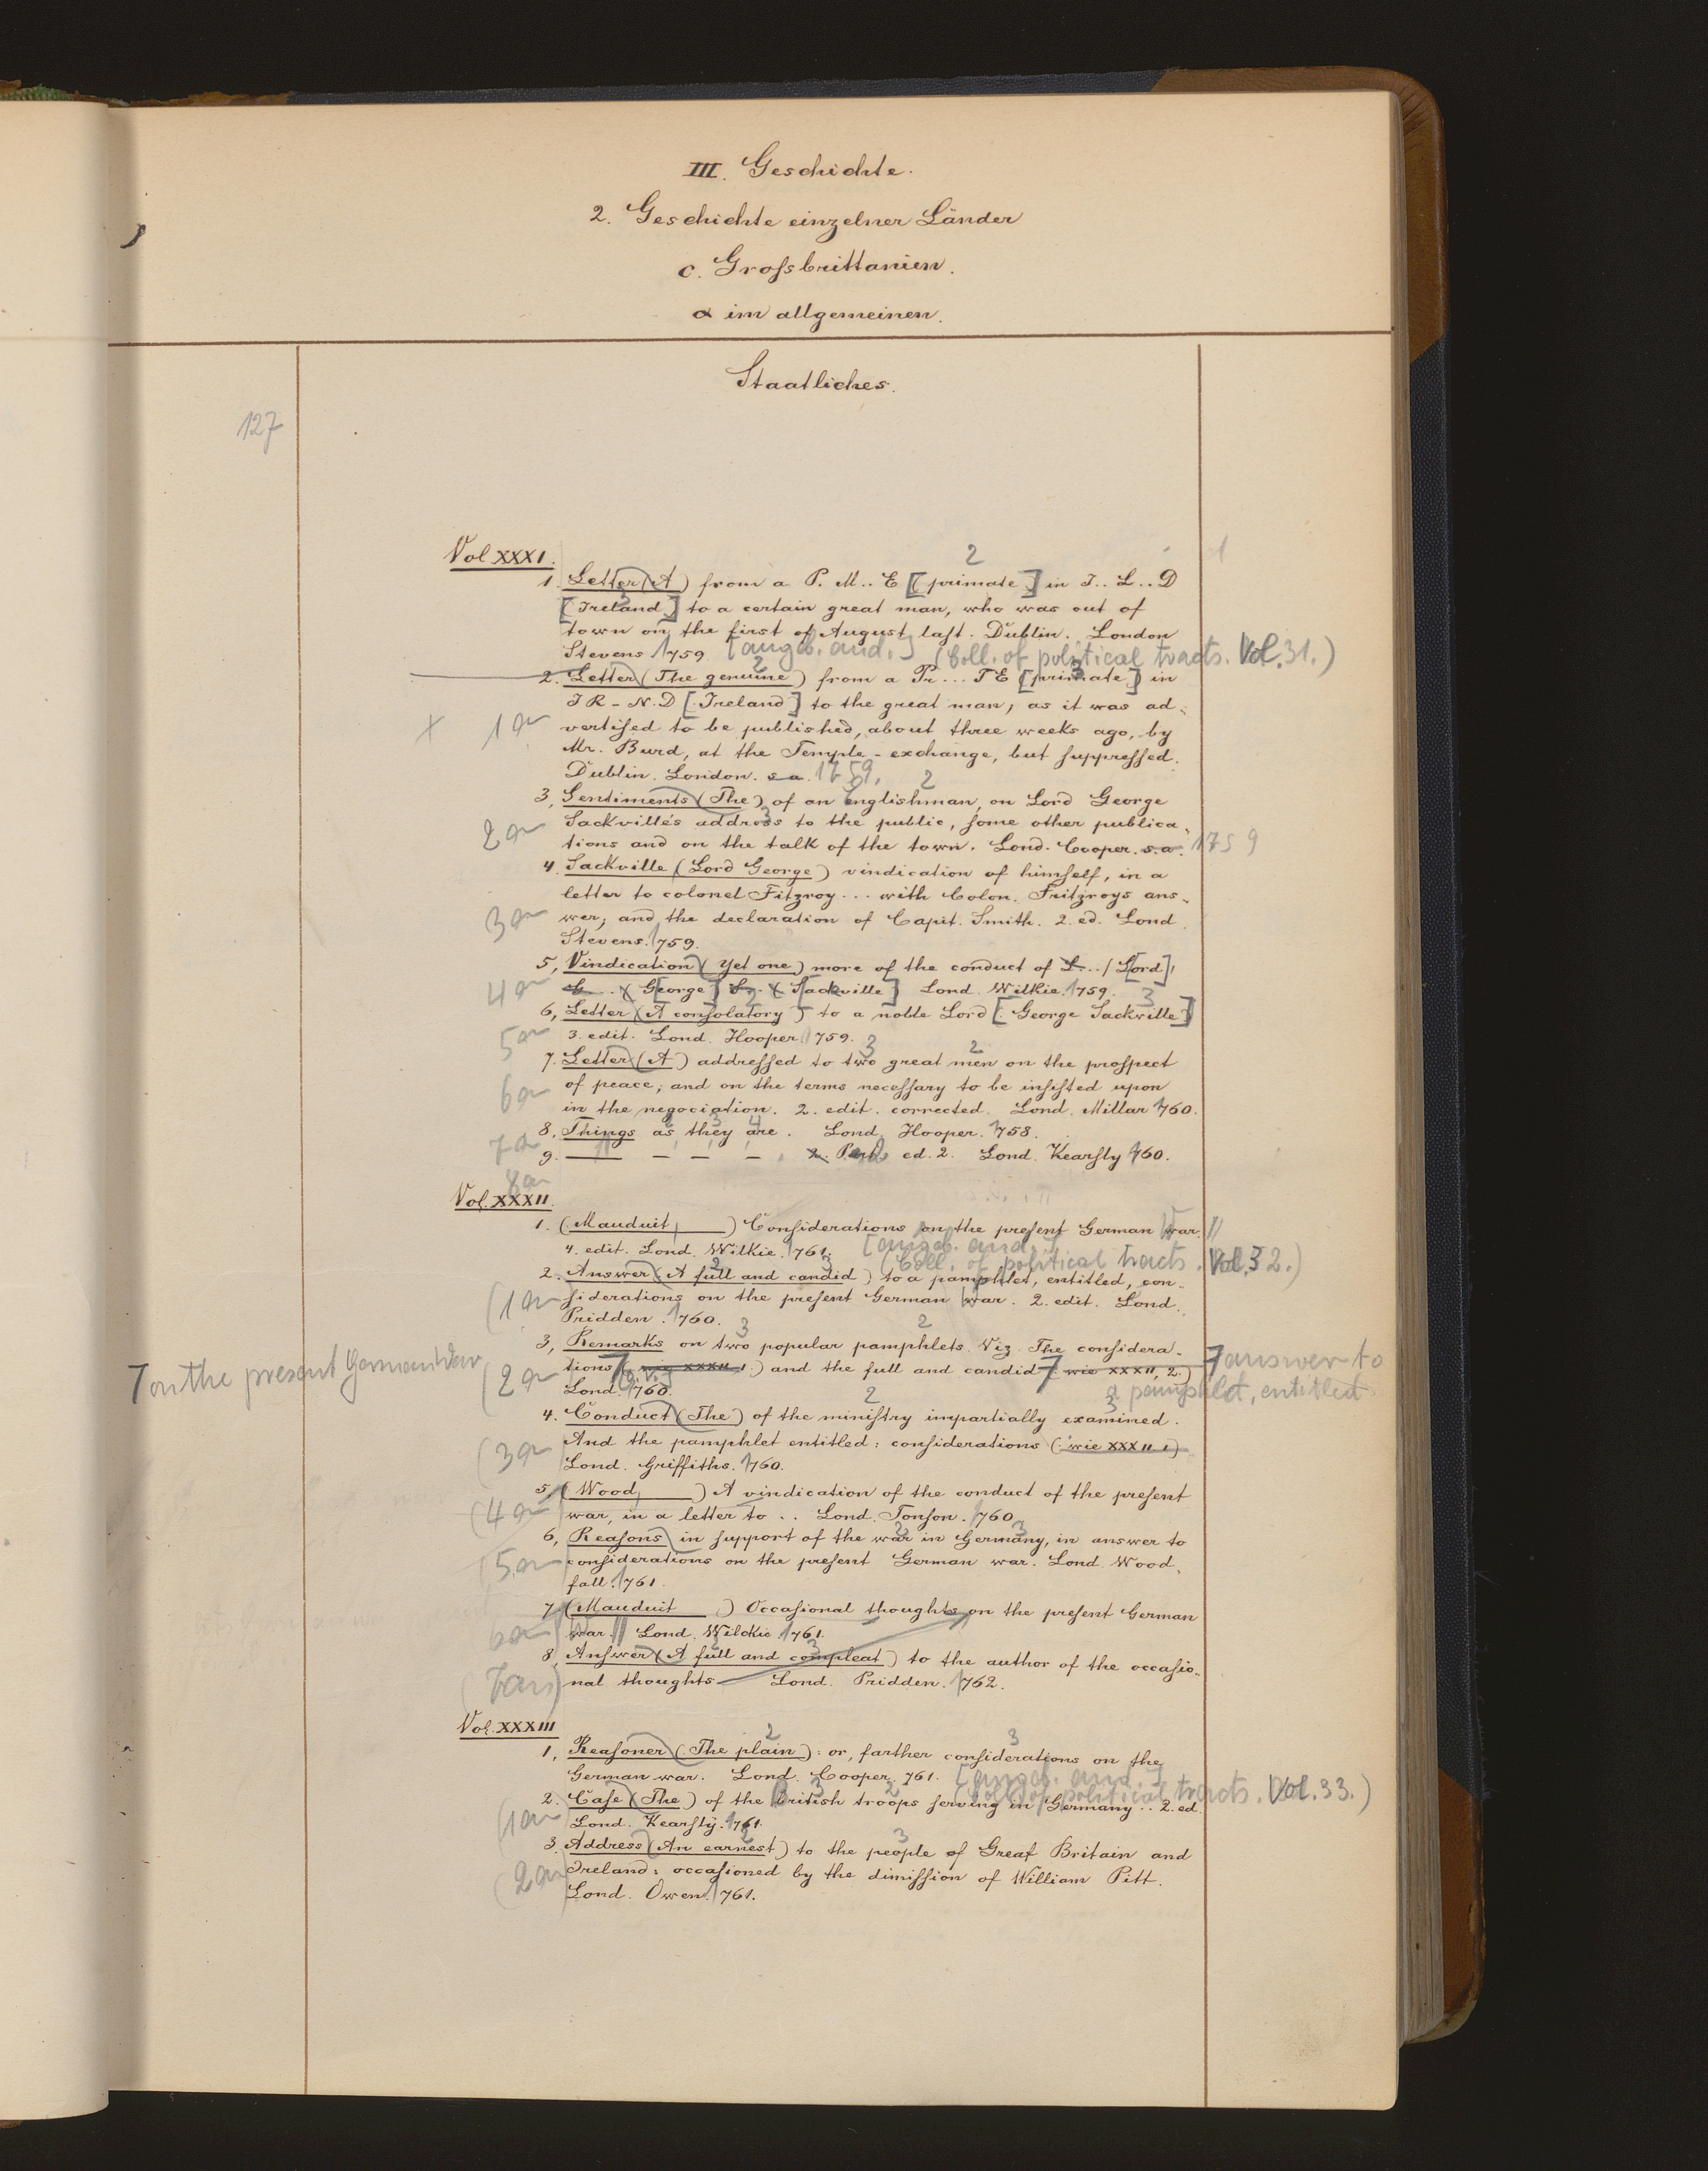 III. Geschichte.
2. Geschichte einzelner Länder
c. Grossbrittanien.
α im allgemeinen.
Staatliches.
127
Vol XXXI.
1. Letter (A) from a P. M.. E [primate] in I.. L.. D
[Ireland] to a certain great man, who was out of
town on the first of August last. Dublin. London
Stevens 1759. [angeb. and.] (Coll. of political tracts. Vol. 31.)
2. Letter (The genuine) from a Pr... T E [primate] in
I R - N. D [Ireland] to the great man; as it was ad-
× 1an vertised to be published, about three weeks ago, by
Mr. Burd, at the Temple-exchange, but suppressed.
Dublin. London. s. a. 1759.
3. Sentiments (The) of an englishman, on Lord George
2an Sackville's address to the public, some other publica-
tions and on the talk of the town. Lond. Cooper. s. a. 1759
4. Sackville (Lord George) vindication of himself, in a
letter to colonel Fitzroy... with Colon. Fritzroys ans-
3an wer; and the declaration of Capit. Smith. 2. ed. Lond.
Stevens. 1759.
5. Vindication (Yet one) more of the conduct of L... L[ord]
4an G... G[eorge] S... S[ackville] Lond. Wilkie. 1759.
6. Letter (A consolatory) to a noble Lord [George Sackville]
5an 3. edit. Lond. Hooper 1759.
7. Letter (A) addressed to two great men on the prospect
6an of peace; and on the terms necessary to be insisted upon
in the negociation. 2. edit. corrected. Lond. Millar 1760.
8. Things as they are. Lond. Hooper. 1758.
7an
9. — — — — . 2. Part. ed. 2. Lond. Kearsly 1760.
8an
Vol. XXXII.
1. (Mauduit, ) Considerations on the present German War.
4. edit. Lond. Wilkie. 1761. [angeb. and.] (Coll. of political tracts. Vol. 32.)
2. Answer (A full and candid) to a pamphlet, entitled, con-
(1an siderations on the present German War. 2. edit. Lond.
Pridden. 1760.
3. Remarks on two popular pamphlets. Viz. The considera-
⌈ on the present German War (2an tions ⌈ (wie XXXII, 1.) and the full and candid ⌈ (wie XXXII, 2.) ⌈ answer to
Lond. 1760. a pamphlet, entitled
4. Conduct (The) of the ministry impartially examined.
(3an And the pamphlet entitled: considerations (wie XXXII 1)
Lond. Griffiths. 1760.
5. (Wood, ) A vindication of the conduct of the present
(4an war, in a letter to .. Lond. Tonson. 1760
6. Reasons in support of the war in Germany, in answer to
(5an considerations on the present German war. Lond. Wood-
fall. 1761.
7. (Mauduit ) Occasional thoughts on the present German
6an War. Lond. Wilckie. 1761.
8. Answer (A full and compleat) to the author of the occasio-
(7an) nal thoughts Lond. Pridden. 1762.
Vol. XXXIII
1. Reasoner (The plain): or, farther considerations on the
German war. Lond. Cooper. 761. [angeb. and.]
(Coll. of political tracts. Vol. 33.)
2. Case (The) of the British troops serving in Germany.. 2. ed.
(1an Lond. Kearsly. 1761.
3. Address (An earnest) to the people of Great Britain and
(2an Ireland: occasioned by the dimission of William Pitt.
Lond. Owen. 1761.